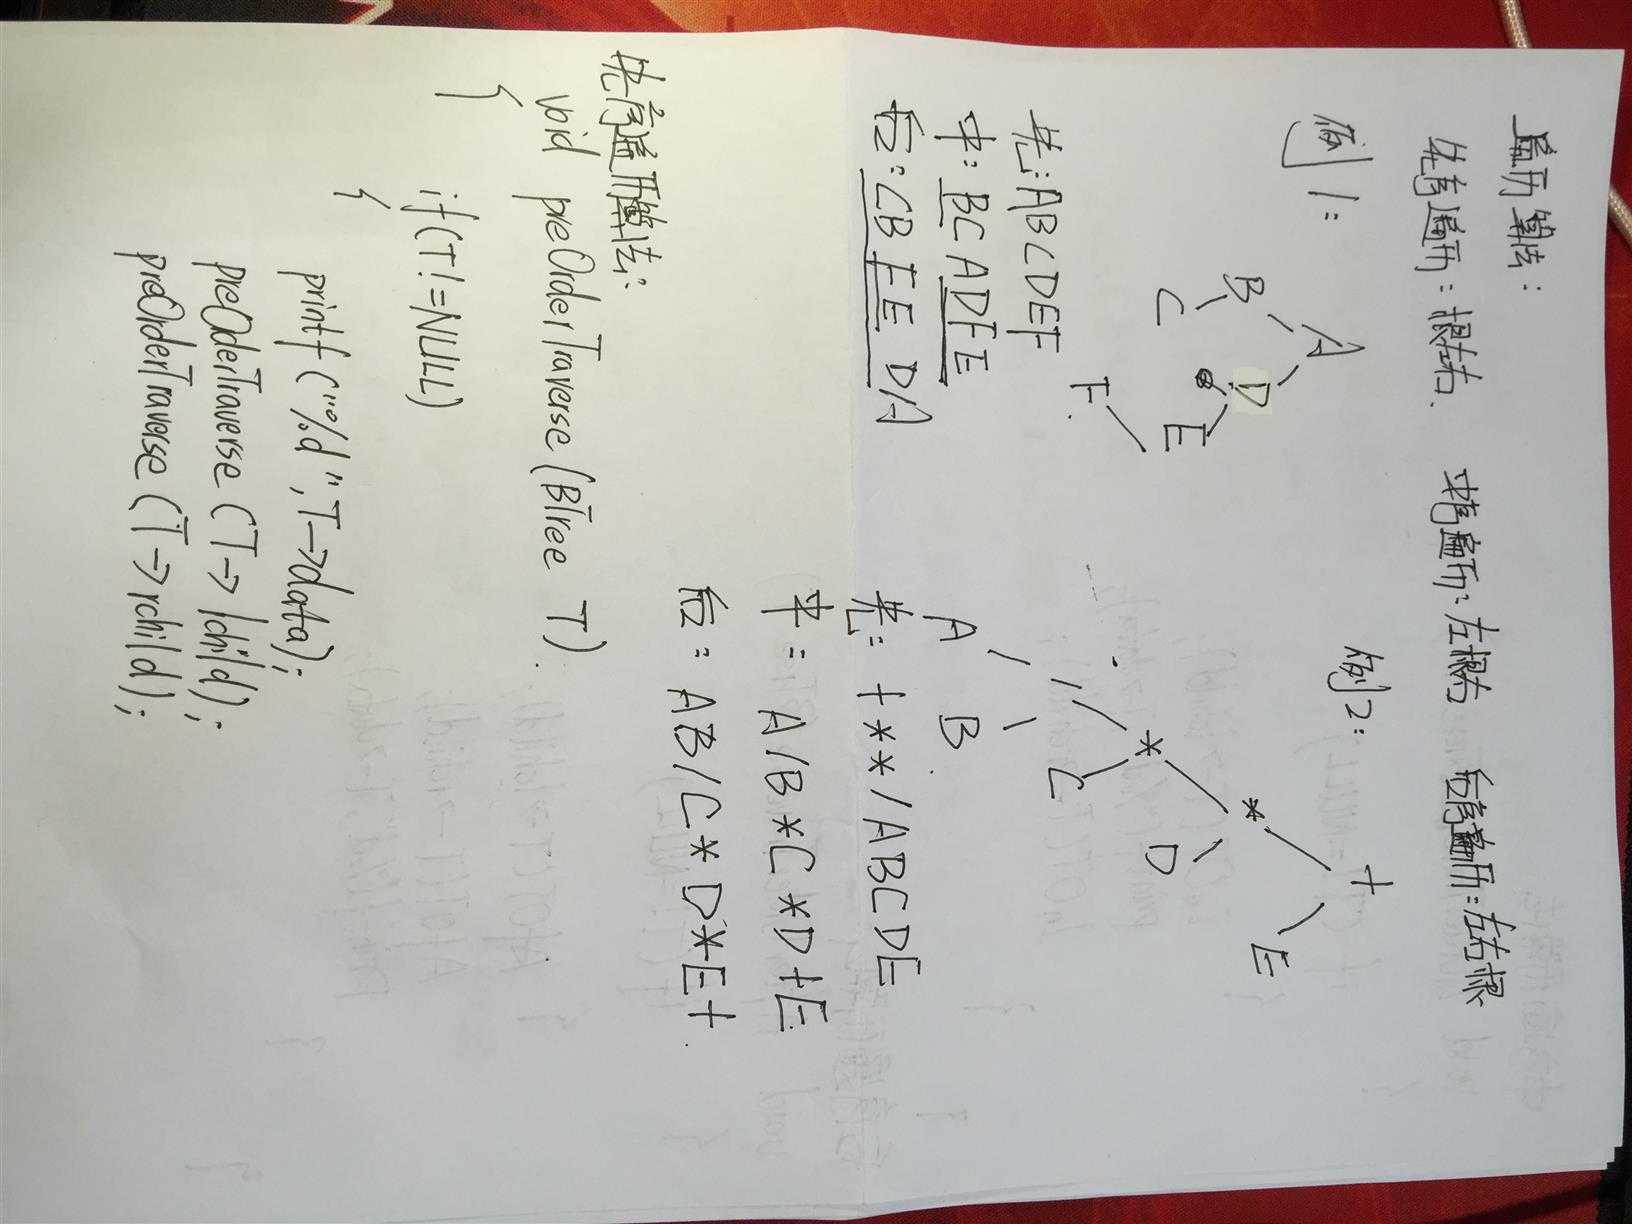 遍历算法：
先序遍历：根左右. 中序遍历：左根右 后序遍历：左右根
例1：
A
B D
C E
F
先：ABCDEF
中：BCADFE
后：CBFEDA
例2：
+
* E
* D
/ C
A B
先：+**/ABCDE
中：A/B*C*D+E
后：AB/C*D*E+
先序遍历算法：
void preOrderTraverse(BTree T)
{
if(T!=NULL)
{
printf("%d",T->data);
preOderTraverse(T->lchild);
preOrderTraverse(T->rchild);